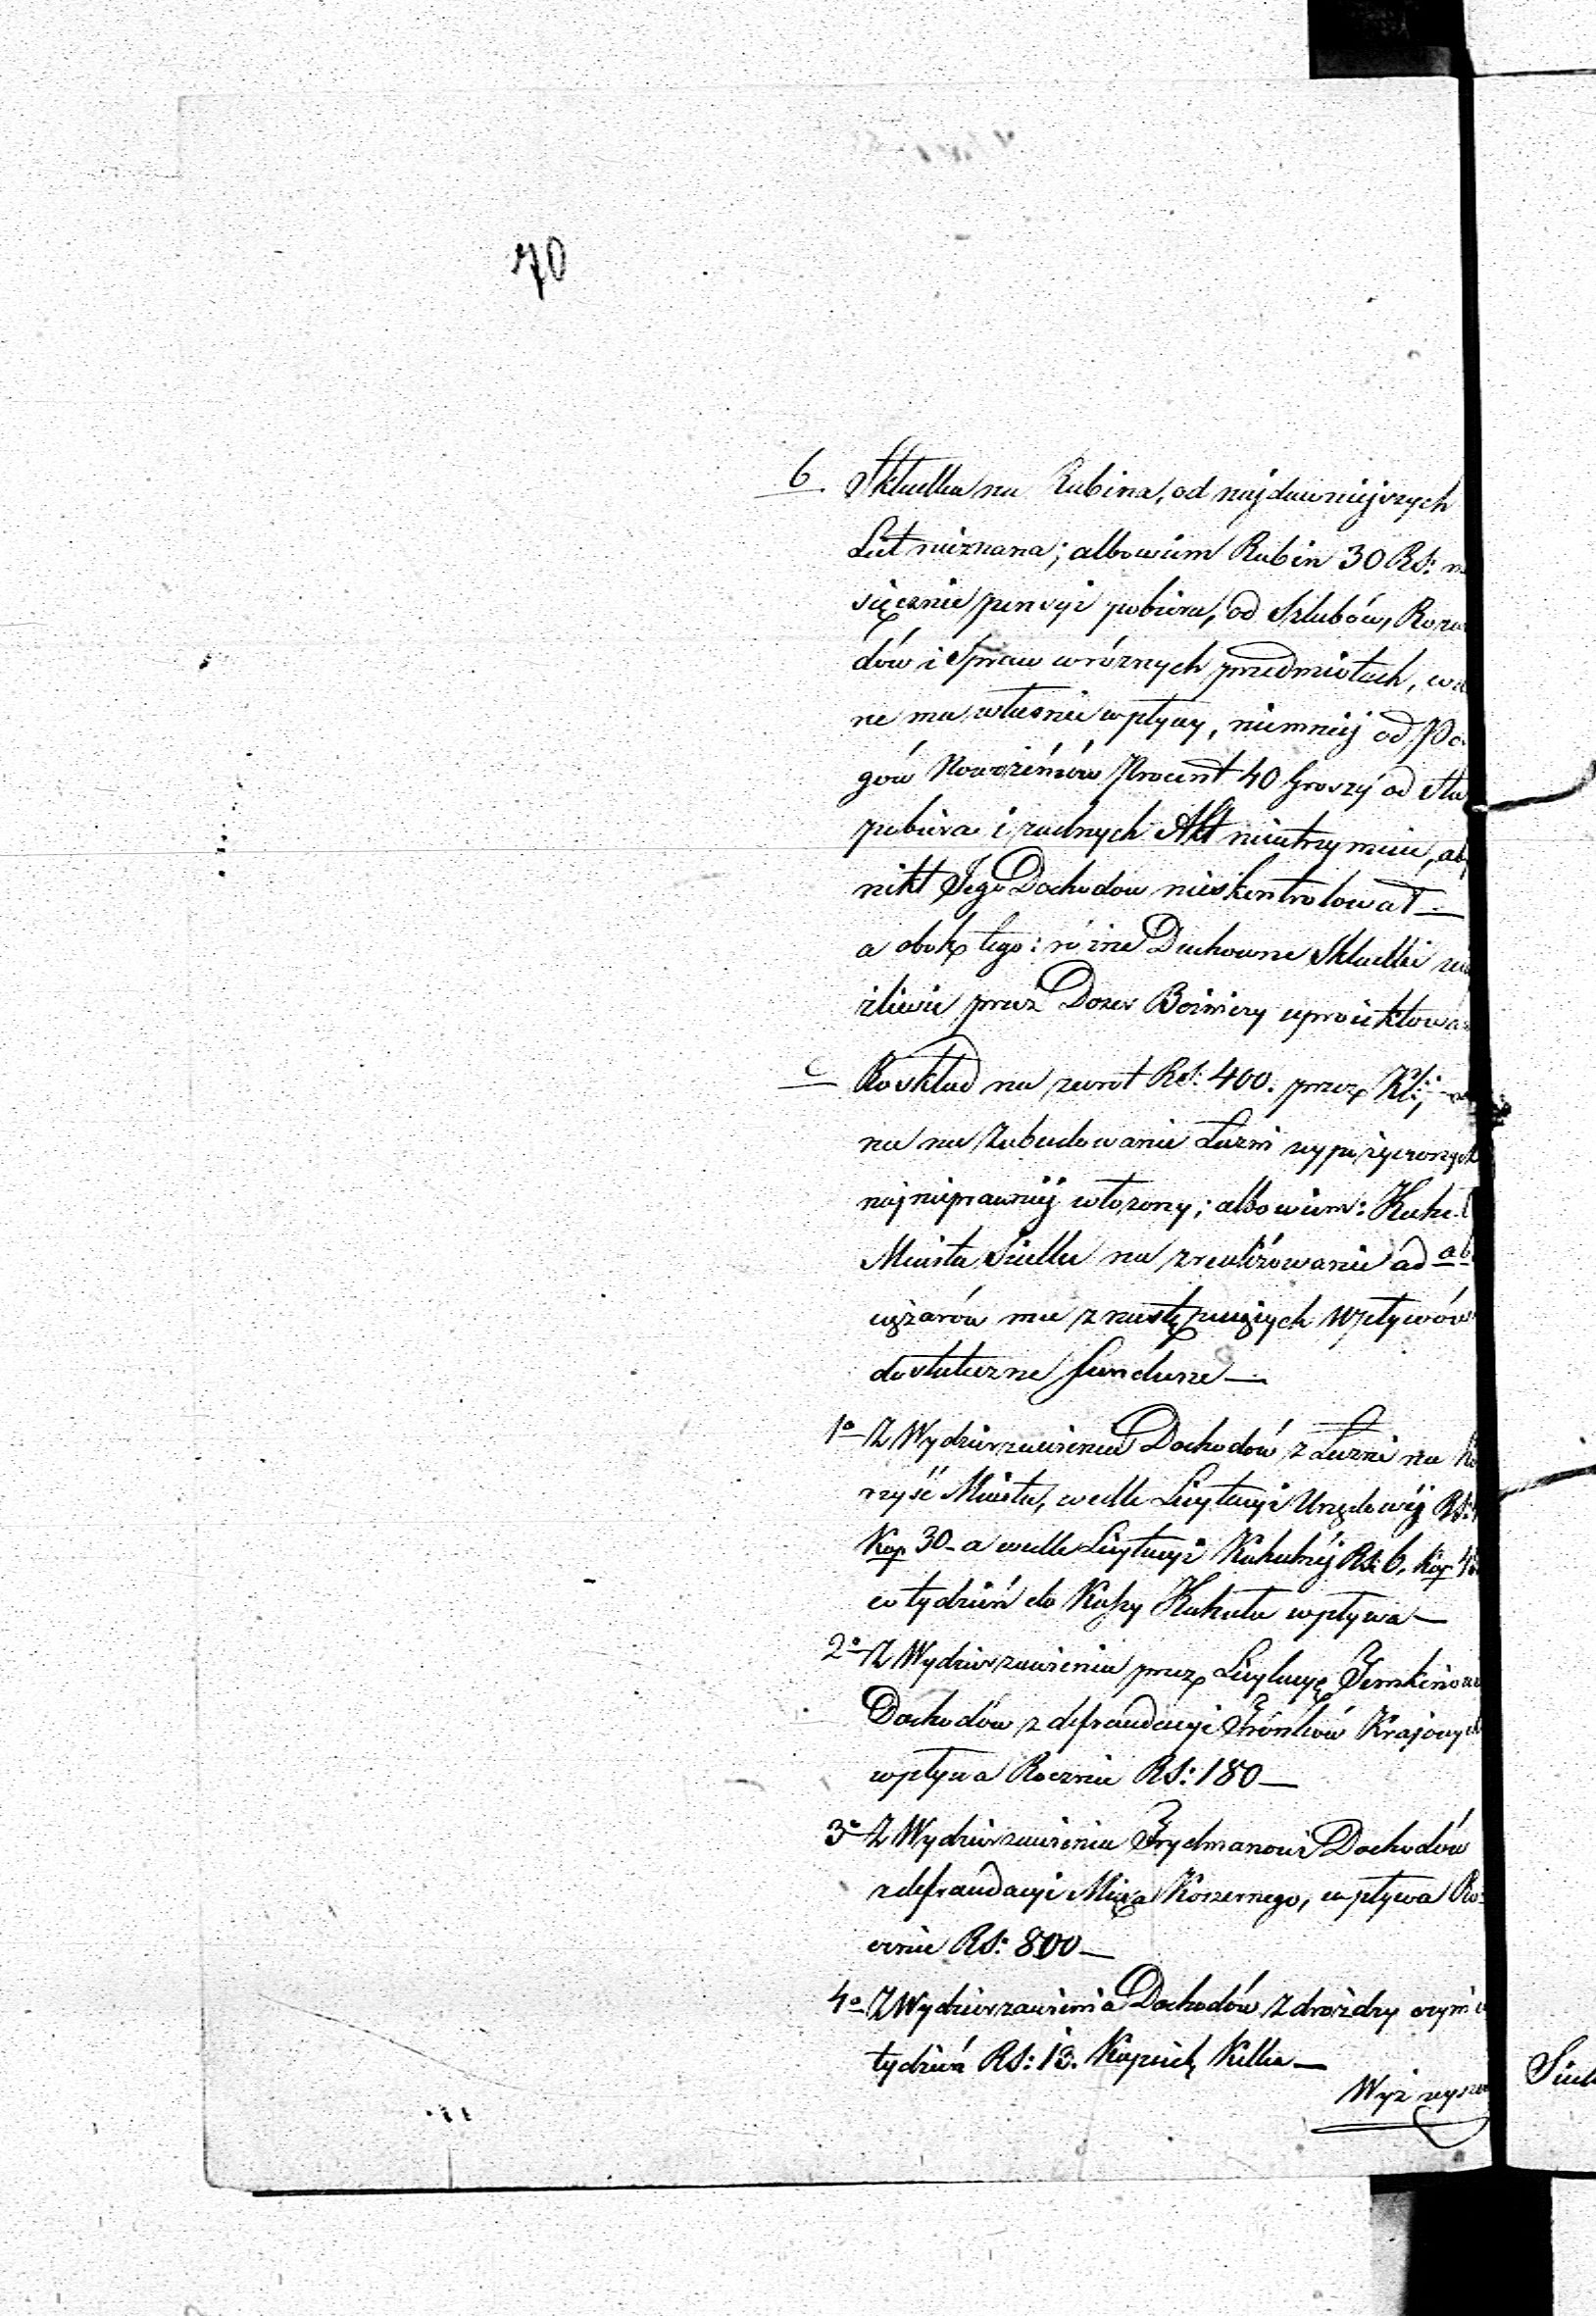 70
b Składka na Rabina, od najdawniejszych
Lat nieznana; albowiem Rabin 30 RS: m
sięcznie pensyi pobiera, od Szlubów, Rozw
dów i Spraw wróżnych przedmiotach,
ne ma własnie wpływy, niemniej od Po
gów Nowożeńców Procent 40 Groszy od
pobiera i żadnych Akt nieutrzymuie, aby
nikt Jego Dochodow nieskontrolował —
a obok tego: różne Duchowne Składki
żliwie przez Dozor Bożniczy uproiektowa
c Roskład na zwrot RS: 400. przez
na na Zabudowanie Łazni wypożyczonych
najnieprawniej włożony; albowiem: Kaha
Miasta Siedlec na zrealizowanie ad ab
ciężarów ma z następuiących Wpływów
dostateczne fundusze —
1o Z Wydzierzawienia Dochodów z Łazni na ko
rzyść Miasta, wedle Licytacyi Urzędowéj RS:
Kop 30 — a wedle Licytacyi Kahalnéj RS: 6. Kop 4
co tydzień do Kassy Kahału wpływa —
2o Z Wydzierzawienia przez Licytacyę
Dochodów z defraudacyi Trónków Krajowych
wpływa Rocznie RS: 180 —
3o Z Wydzierzawienia Frydmanowi Dochodów
z defraudacyi Mięsa Koszernego, wpływa Ro
cznie RS: 800 —
4o Z Wydzierzawienia Dochodów z drożdży czyni
tydzień RS: 13. Kopiiek Kilka —
Wyż